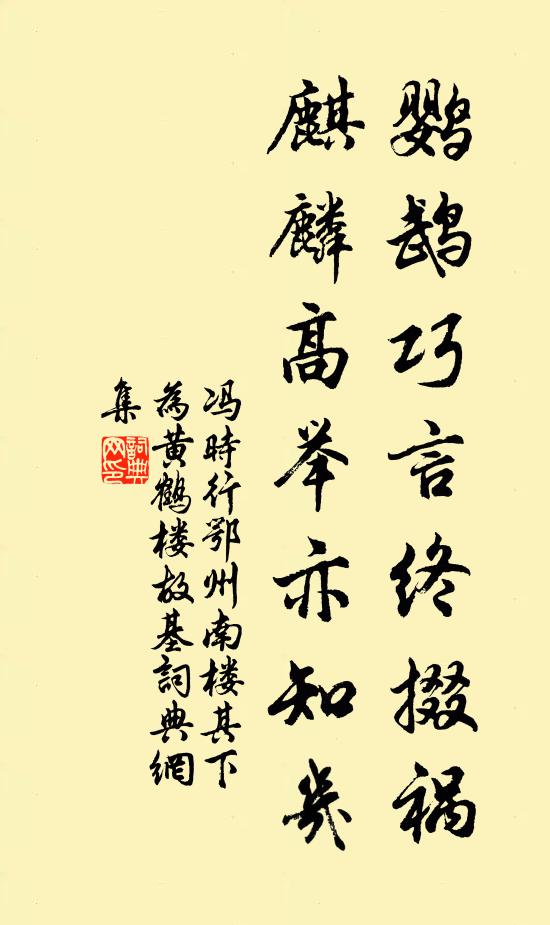 鹦鹉巧言终掇祸
麒麟高举亦知几
冯時行鄂州南楼其下
為黄鹤楼故基詞典網
集
詞典網印